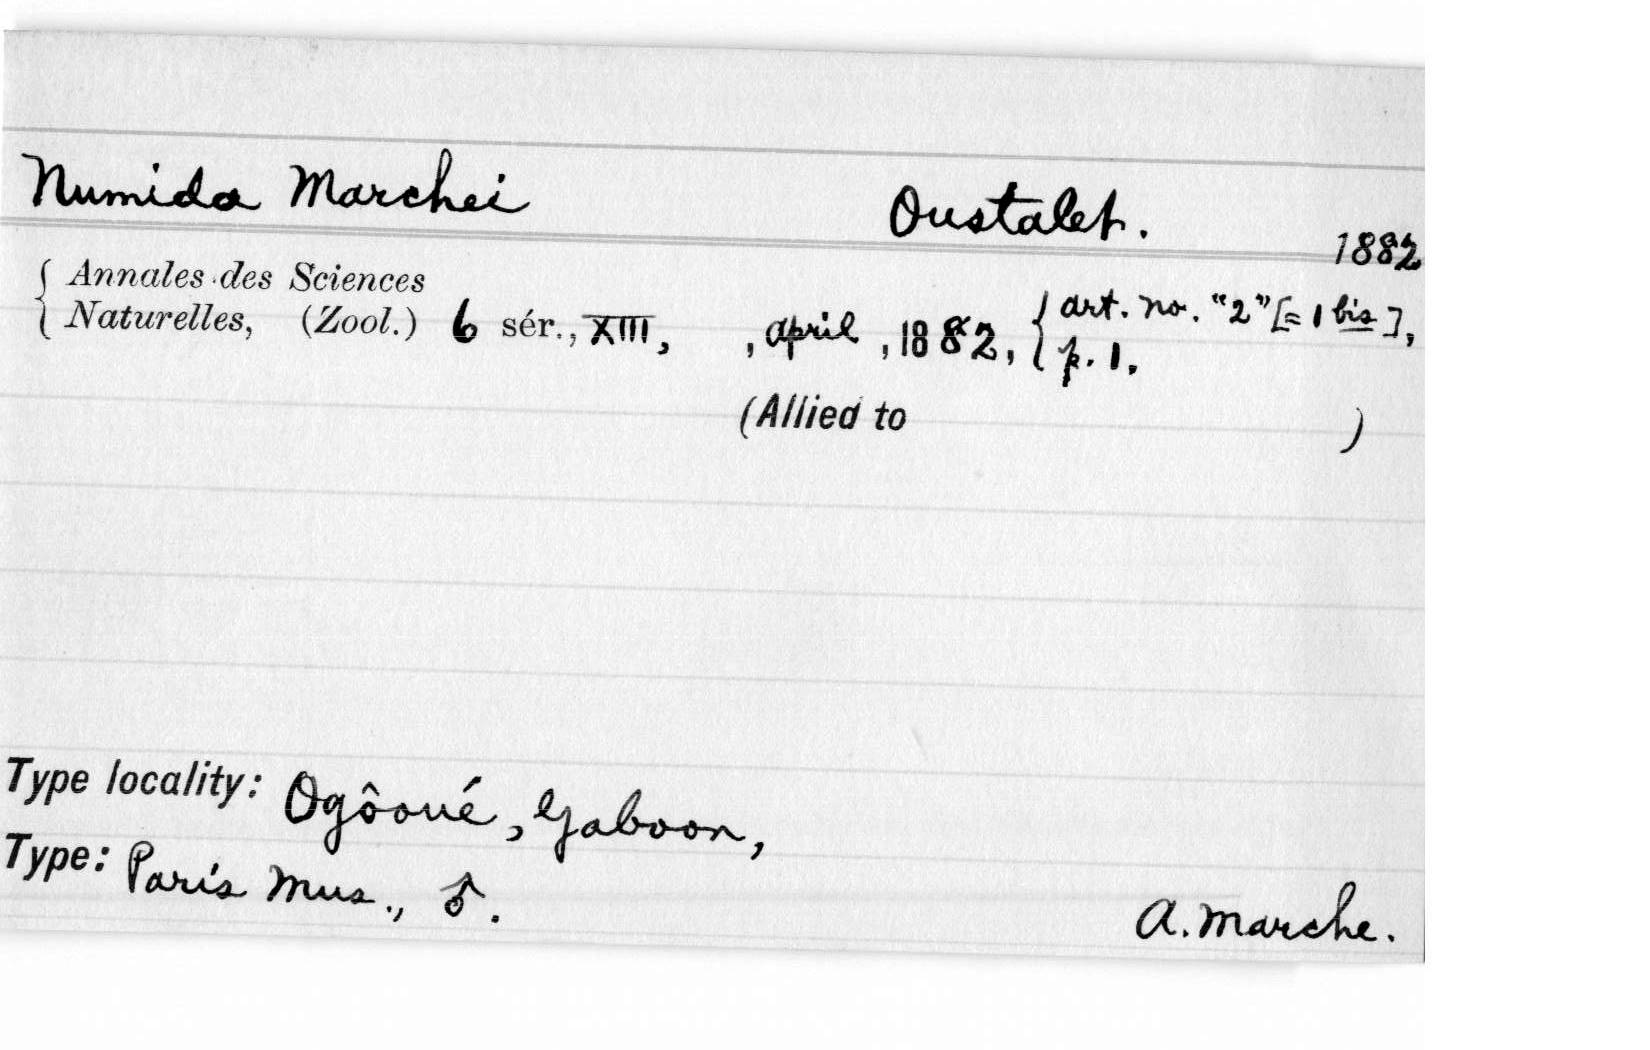 Numida Marchei Oustalet. 1882
Annales des Sciences
Naturelles, (Zool.) 6 sér., XIII, , april , 1882, { art. no. "2" [= 1 bis],
p. 1.
(Allied to )
Type locality: Ogôoué, Gaboon,
Type: Paris Mus., ♂. A. Marche.